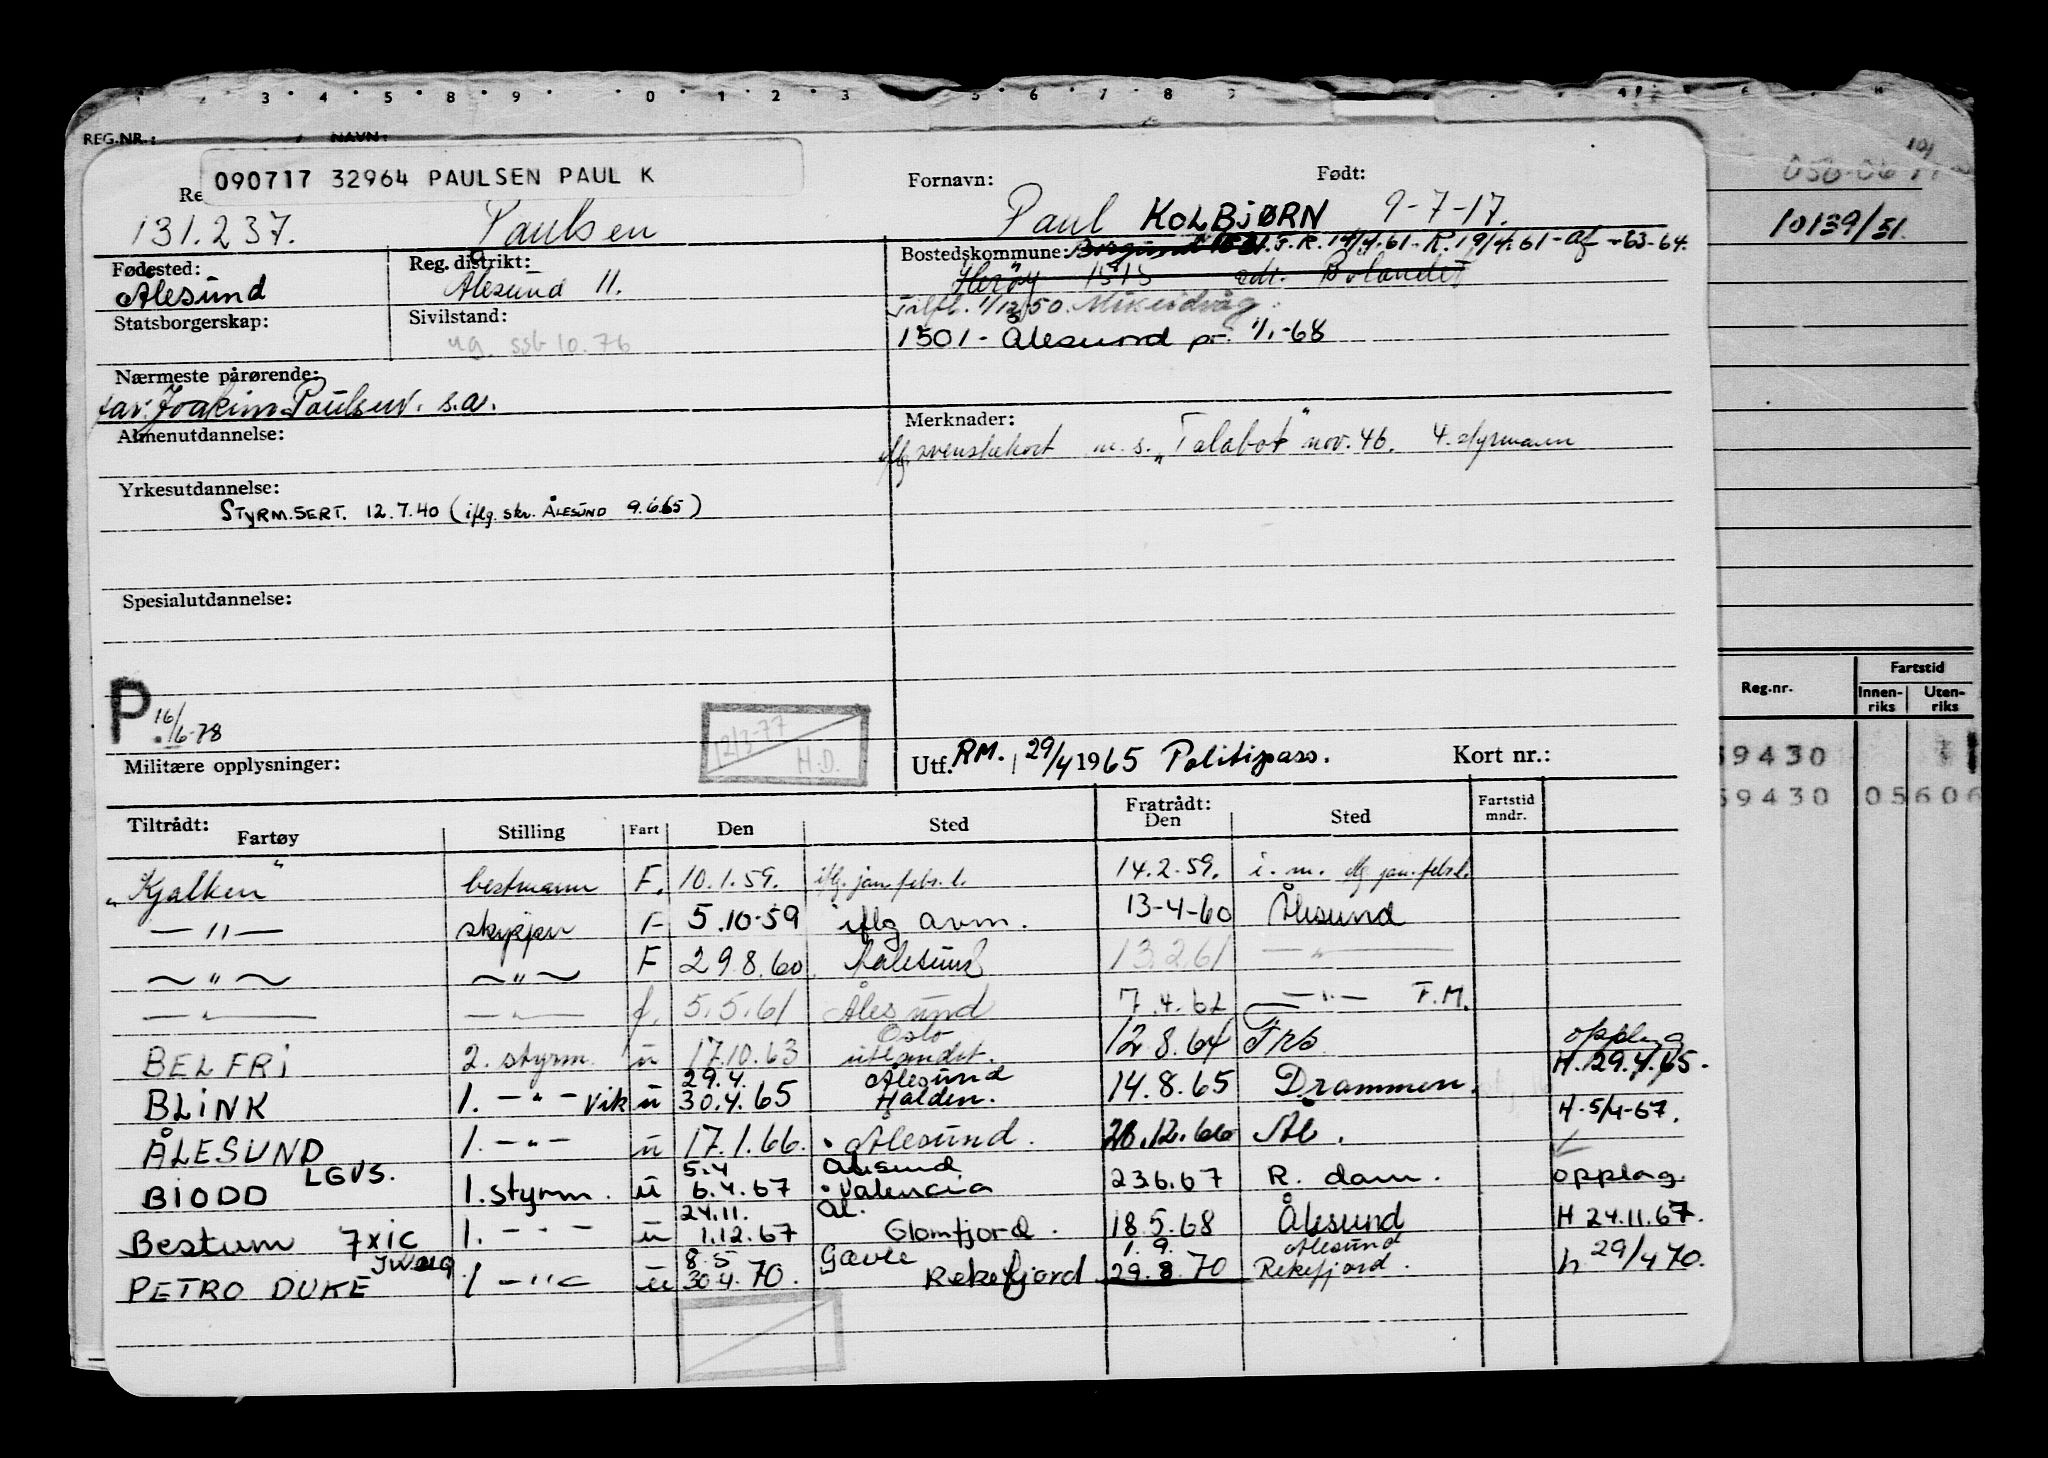 REG.NR.: NAVN:
090717 32964 PAULSEN PAUL K
Fornavn: Født:
131.237. Paulsen Paul KOLBJØRN 9-7-17.
10139/51.
Fødested: Reg. distrikt: Bostedskommune: F.R. 14/4.61. R. 19/4.61 - Af -63-64.
Ålesund Ålesund 11. Herøy 1515
Statsborgerskap: Sivilstand: Tilfl. 1/12.50.
ug. ssb 10.76 1501 - Ålesund pr. 1/1.-68
Nærmeste pårørende:
far: Joakim Paulsen. s.a.
Almenutdannelse: Merknader:
svenskekort m.s. "Talabot" nov. 46. 4. styrmann
Yrkesutdannelse:
STYRM.SERT. 12.7.40 (iflg. skr. ÅLESUND 9.6.65)
Spesialutdannelse:
P. 16/6-78
12/3-77
H.D.
Militære opplysninger: Utf. RM. 29/4 1965 Politipass. Kort nr.:
Reg.nr. Fartstid
Innen-riks Uten-riks
59430
59430 05606
Tiltrådt: Fratrådt:
Fartøy Stilling Fart Den Sted Den Sted Fartstid mndr.
"Kjalken" bestmann F. 10.1.59. iflg. jan. febr. l. 14.2.59. i. m. iflg. jan. febr. l.
— " — skipper F 5.10-59 iflg avm. 13-4-60 Ålesund
— " — — " — F 29.8.60 Aalesund 13.2.61 — " —
— " — — " — f. 5.5.61 Ålesund 7.4.62 — " — F.M.
Oslo
BELFRI 2. styrm. u 17.10.63 utlandet. 12.8.64 Frs opplag
29.4. Ålesund H. 29.4.65.
BLINK 1. — " — vik u 30.4.65 Halden. 14.8.65 Drammen.
ÅLESUND 1. — " — u 17.1.66. Ålesund. 28.12.66 Ål. H. 5/4-67.
LGVS. 5.4 Ålesund
BIODD 1. styrm. u 6.4.67 Valencia 23.6.67 R. dam. opplag
24.11. Ål.
Bestum 7xic 1. — " — u 1.12.67 Glomfjord. 18.5.68 Ålesund H 24.11.67.
8.5 Gävle 1.9. Ålesund
PETRO DUKE 1 — " — u 30.4.70. Rekefjord 29.8.70 Rekefjord. h 29/4 70.